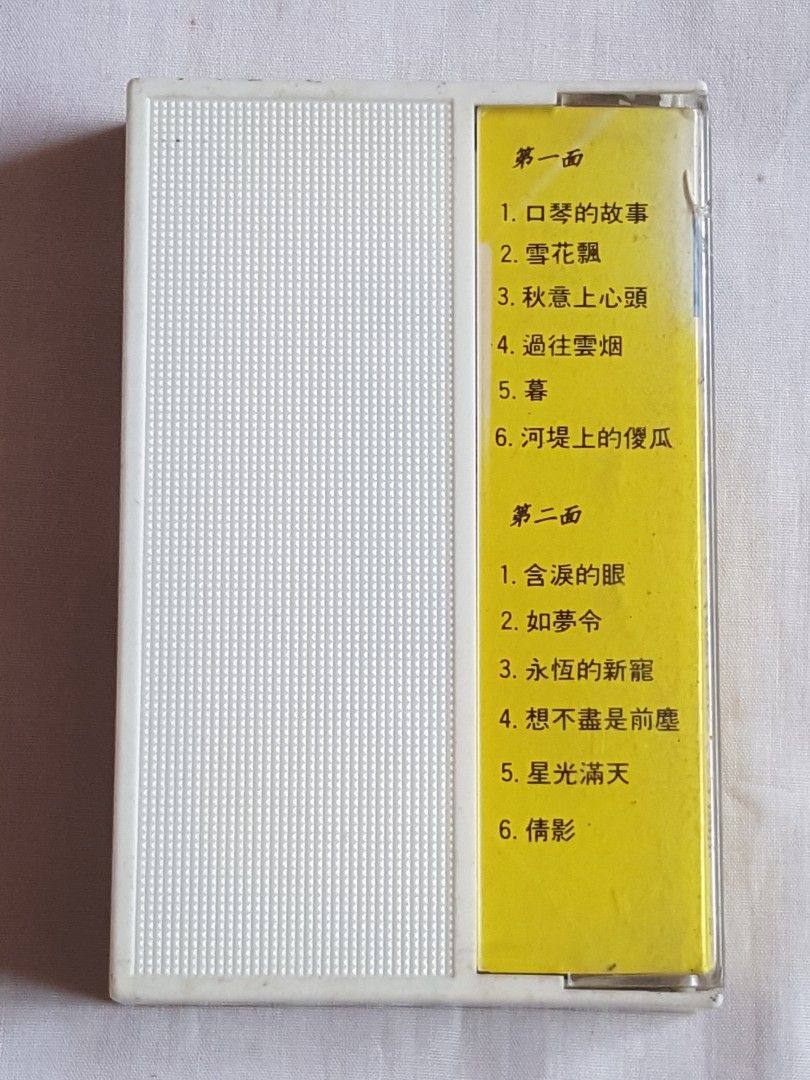 第一面
1. 口琴的故事
2. 雪花飄
3. 秋意上心頭
4. 過往雲烟
5. 暮
6. 河堤上的傻瓜
第二面
1. 含淚的眼
2. 如夢令
3. 永恆的新寵
4. 想不盡是前塵
5. 星光滿天
6. 倩影